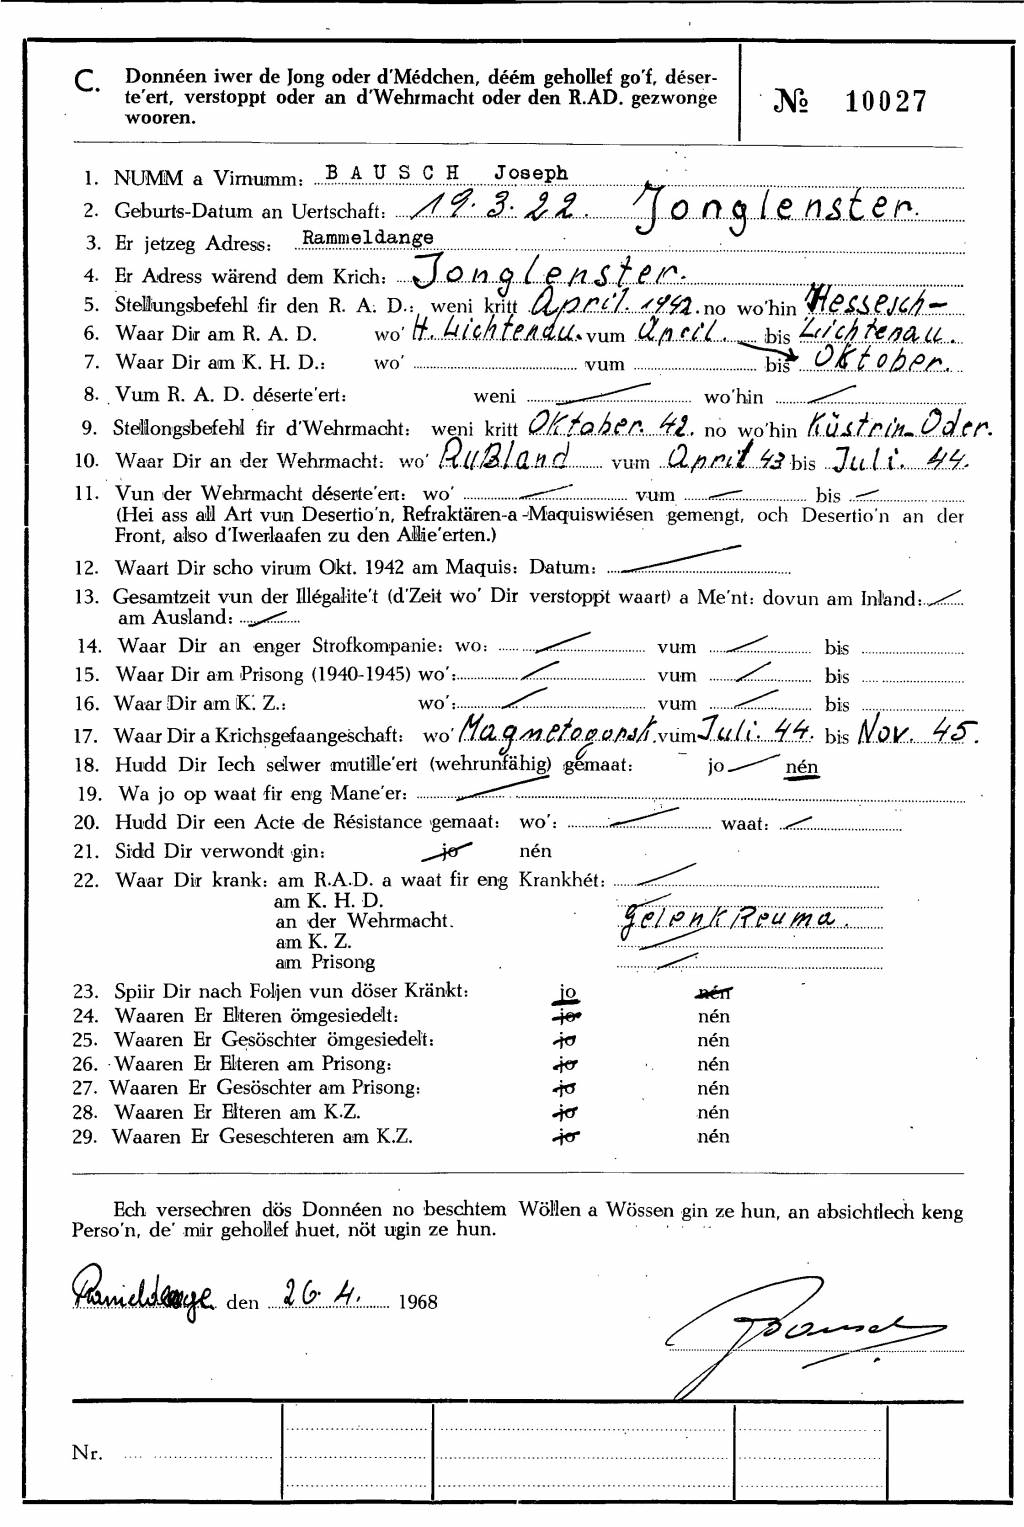 C. Donnéen iwer de Jong oder d'Médchen, déém gehollef go'f, déser-
te'ert, verstoppt oder an d'Wehrmacht oder den R.AD. gezwonge
wooren.
№ 10027
1. NUMM a Virnumm: BAUSCH Joseph
2. Geburts-Datum an Uertschaft: 19.3.22. Jonglenster.
3. Er jetzeg Adress: Rammeldange
4. Er Adress wärend dem Krich: Jonglenster.
5. Stellungsbefehl fir den R. A. D.: weni kritt April. 1942. no wo'hin Hessesch-
6. Waar Dir am R. A. D. wo' H. Lichtenau. vum April. bis Lichtenau.
7. Waar Dir am K. H. D.: wo' vum bis Oktober.
8. Vum R. A. D. déserte'ert: weni wo'hin
9. Stellongsbefehl fir d'Wehrmacht: weni kritt Oktober. 42. no wo'hin Küstrin-Oder.
10. Waar Dir an der Wehrmacht: wo' Rußland vum April 43 bis Juli. 44.
11. Vun der Wehrmacht déserte'ert: wo' vum bis
(Hei ass all Art vun Desertio'n, Refraktären-a-Maquiswiésen gemengt, och Desertio'n an der
Front, also d'Iwerlaafen zu den Allie'erten.)
12. Waart Dir scho virum Okt. 1942 am Maquis: Datum:
13. Gesamtzeit vun der Illégalite't (d'Zeit wo' Dir verstoppt waart) a Me'nt: dovun am Inland:
am Ausland:
14. Waar Dir an enger Strofkompanie: wo: vum bis
15. Waar Dir am Prisong (1940-1945) wo': vum bis
16. Waar Dir am K. Z.: wo': vum bis
17. Waar Dir a Krichsgefaangeschaft: wo' Magnetogorsk. vum Juli. 44. bis Nov. 45.
18. Hudd Dir Iech selwer mutille'ert (wehrunfähig) gemaat: jo nén
19. Wa jo op waat fir eng Mane'er:
20. Hudd Dir een Acte de Résistance gemaat: wo': waat:
21. Sidd Dir verwondt gin: jo nén
22. Waar Dir krank: am R.A.D. a waat fir eng Krankhét:
am K. H. D.
an der Wehrmacht. GelenkReuma.
am K. Z.
am Prisong
23. Spiir Dir nach Foljen vun döser Kränkt: jo nén
24. Waaren Er Elteren ömgesiedelt: jo nén
25. Waaren Er Gesöschter ömgesiedelt: jo nén
26. Waaren Er Elteren am Prisong: jo nén
27. Waaren Er Gesöschter am Prisong: jo nén
28. Waaren Er Elteren am K.Z. jo nén
29. Waaren Er Geseschteren am K.Z. jo nén
Ech versechren dös Donnéen no beschtem Wöllen a Wössen gin ze hun, an absichtlech keng
Perso'n, de' mir gehollef huet, nöt ugin ze hun.
Rameldange den 26.4. 1968
Bausch
Nr.